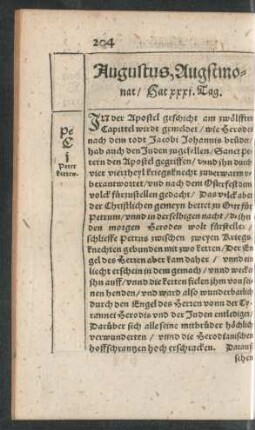 204
Augustus, Augstmo-
nat/ Hat xxxi. Tag.
Pe
C
j
Peter
IN der Apostel geschicht am zwölfften
Capittel wirdt gemeldet/ wie Herodes
nach dem todt Jacobi Johannis brüder/
hab auch den Juden zugefallen/ Sanct pe-
tern den Apostel gegriffen/ vnnd ihn durch
vier viertheyl kriegßknecht zuuerwaren v-
berantwortet/ vnd nach dem Osterfest dem
volck fürzustellen gedacht/ Das volck aber
der Christlichen gemeyn bettet zu Gott für
Petrum/ vnnd in derselbigen nacht/ da ihn
den morgen Herodes wolt fürstellen/
schlieffe Petrus zwischen zweyen Kriegs-
knechten gebunden mit zwo ketten/ Der En-
gel des Herren aber kam daher/ vnnd ein
liecht erschein in dem gemach/ vnnd weckte
ihn auff/ vnnd die ketten fielen ihm von sei-
nen henden/ vnd ward also wunderbarlich
durch den Engel des Herren vonn der Ty-
rannei Herodis vnd der Juden entlediget/
Darüber sich alle seine mitbrüder höchlich
verwunderten/ vnnd die Herodianischen
hoffschrantzen hoch erschracken. Darauß
sehen